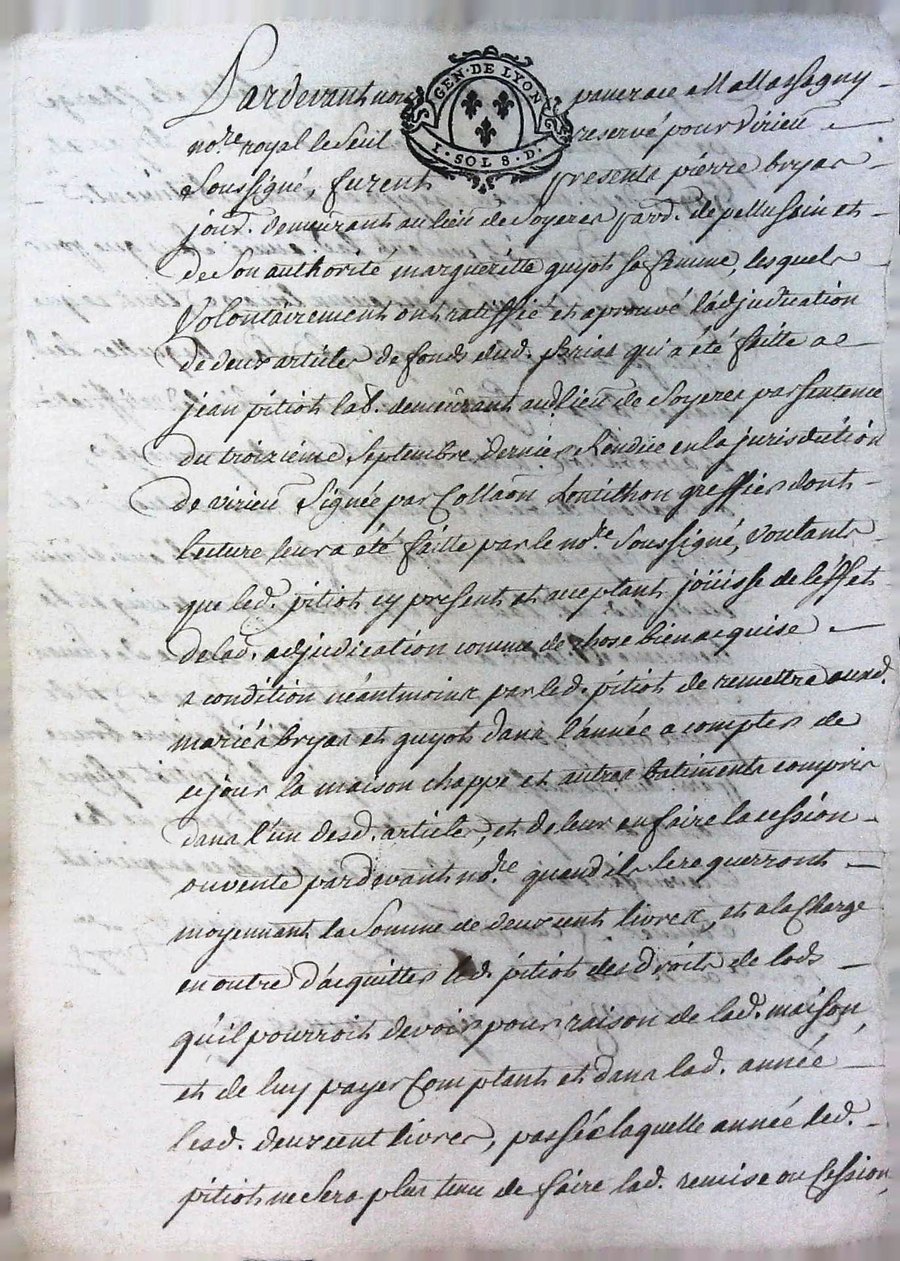 Pardevant nous pancrace Mattassagny
GEN·DE LYON
I·SOL 8·D·
no.re royal le Seul reservé pour Virieu
Soussigné, furent presents pierre bryas
jour.r demeurant au lieu de Soyeres par.d. de pellussin et
de Son authorité margueritte guyot sa femme, lesquels
Volontairement ont ratiffié et aprouvé l'adjudication
de deux articles de fonds dud. Brias qui a été faitte a
jean pitiot lab. demeurant aud. lieu de Soyeres par Sentence
du troizième Septembre dernier Rendüe en la jurisdiction
de virieu Signée par Collaon Lentilhon greffier dont
lecture leur a été faitte par le no.re Soussigné, voulants
que led. pitiot cy present et aceptant joüisse de l'effet
de lad. adjudication comme de chose bien acquise
a condition néantmoins par led. pitiot de remettre auxd.
mariés bryas et guyot dans l'année a compter de
ce jour la maison chappe et autres batiments compris
dans l'un desd. articles, et de leur en faire la cession
ou vente pardevant no.re quand il le requerront
moyennant la Somme de deux cent livres, et a la Charge
en outre d'acquitter led. pitiot des droits de lods
qu'il pourroit devoir pour raison de lad. maison
et de luy payer Comptant et dans lad. année
lesd. deux cent livres, passée laquelle année led.
pitiot ne Sera plus tenu de faire lad. remise ou Cession,